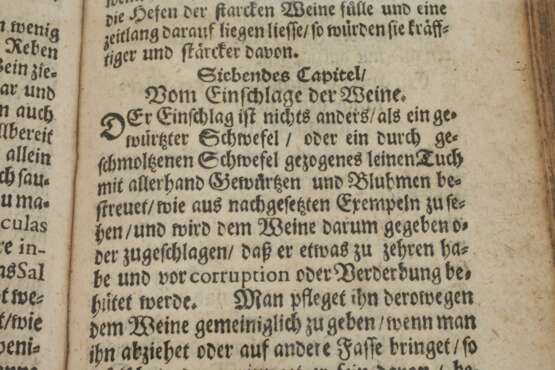 n wenig
Reben
Sein zie-
ar und
n auch
llbereit
allein
ch sau-
u ma-
culas
re in-
as Sal
t we-
t/wie
peni-
anne-
die Hefen der starcken Weine fülle und eine
zeitlang darauf liegen liesse/so würden sie kräff-
tiger und stärcker davon.
Siebendes Capitel/
Vom Einschlage der Weine.
DEr Einschlag ist nichts anders/als ein ge-
würtzter Schwefel / oder ein durch ge-
schmoltzenen Schwefel gezogenes leinen Tuch
mit allerhand Gewürtzen und Bluhmen be-
streuet/wie aus nachgesetzten Exempeln zu se-
hen/und wird dem Weine darum gegeben o-
der zugeschlagen/ daß er etwas zu zehren ha-
be und vor corruption oder Verderbung be-
hütet werde. Man pfleget ihn derowegen
dem Weine gemeiniglich zu geben/wenn man
ihn abziehet oder auf andere Fasse bringet/so